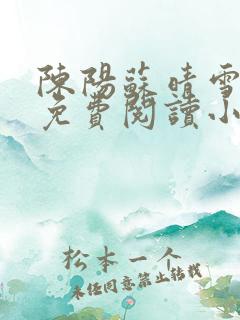 陳陽蘇晴雪
免費閱讀小
松本一个
未经同意禁止转载